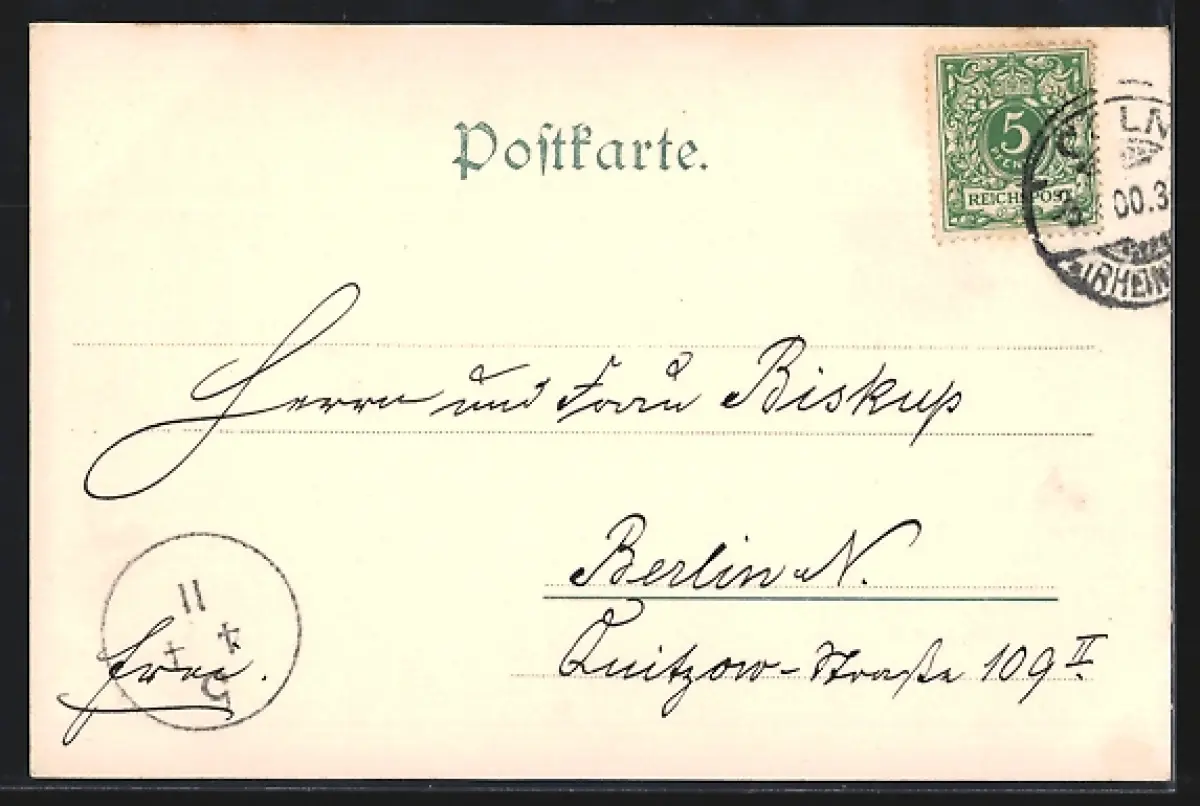 Postkarte.
5
REICHSPOST
00.3
(RHEIN
Herrn und Frau Biskup
Berlin N.
Quitzow-Straße 109 II
frei.
11
4
5